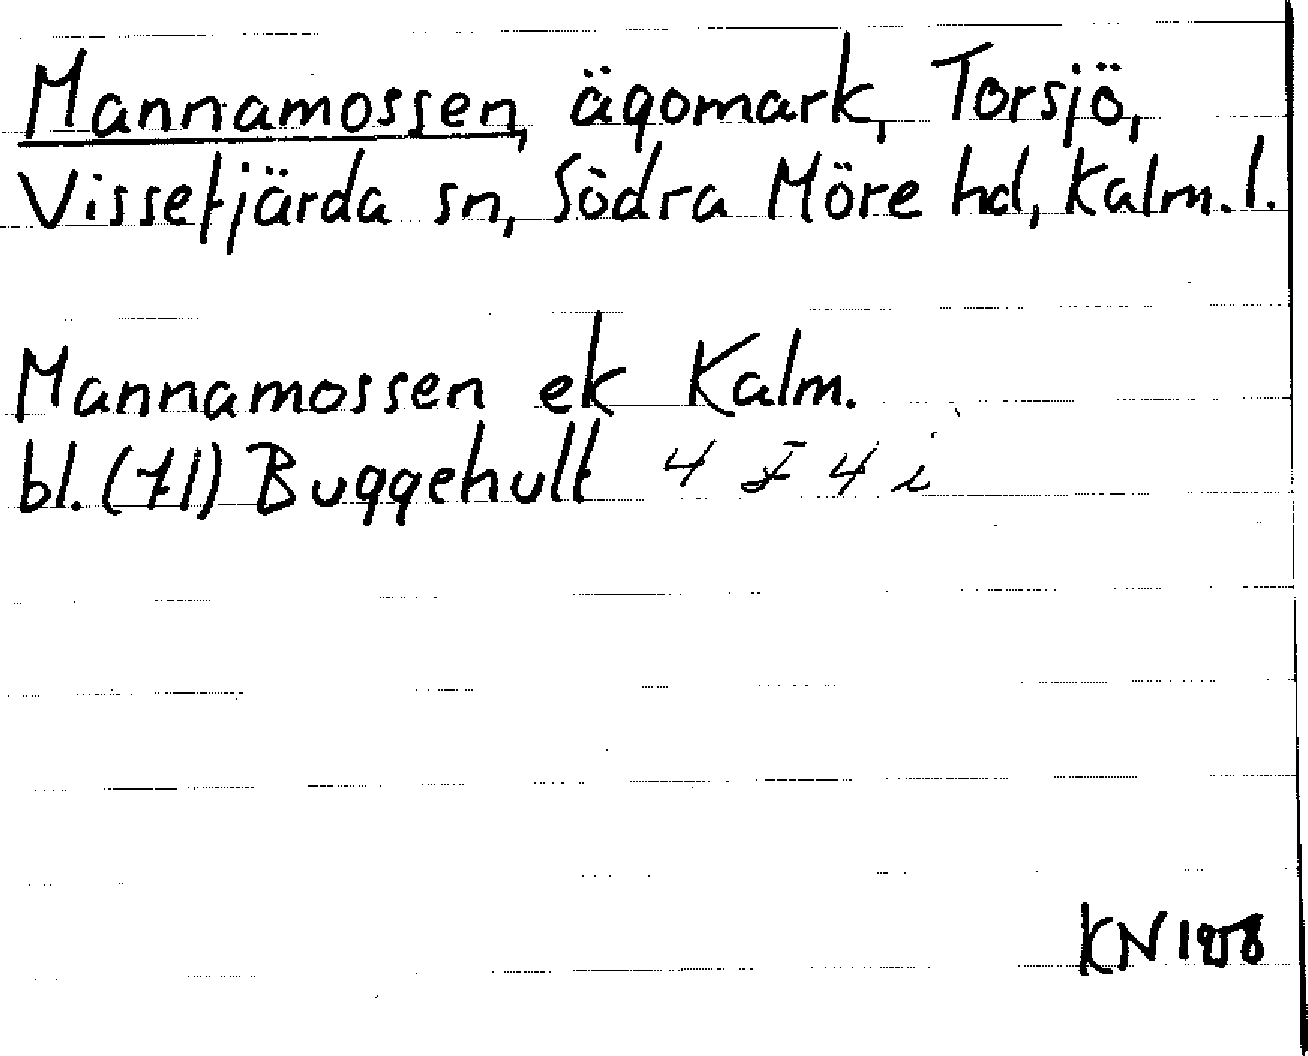 Mannamossen, ägomark, Torsjö,
Vissefjärda sn, Södra Möre hd, Kalm. l.
Mannamossen ek Kalm.
bl. (71) Buggehult 4 F 4 i
KN